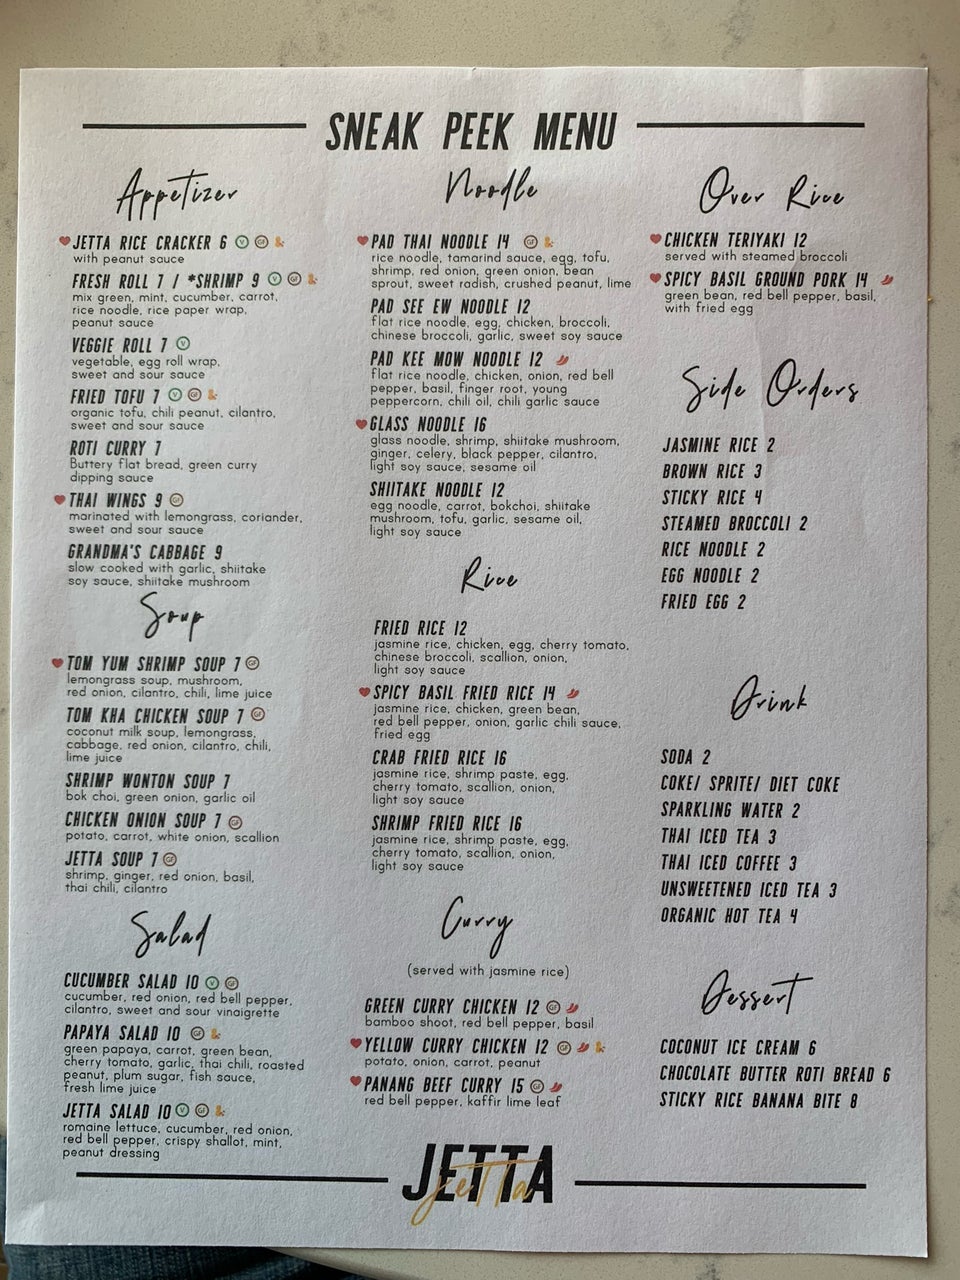 SNEAK PEEK MENU
Appetizer
JETTA RICE CRACKER 6 V GF
with peanut sauce
FRESH ROLL 7 / *SHRIMP 9 V GF
mix green, mint, cucumber, carrot,
rice noodle, rice paper wrap,
peanut sauce
VEGGIE ROLL 7 V
vegetable, egg roll wrap,
sweet and sour sauce
FRIED TOFU 7 V GF
organic tofu, chili peanut, cilantro,
sweet and sour sauce
ROTI CURRY 7
Buttery flat bread, green curry
dipping sauce
THAI WINGS 9 GF
marinated with lemongrass, coriander,
sweet and sour sauce
GRANDMA'S CABBAGE 9
slow cooked with garlic, shiitake
soy sauce, shiitake mushroom
Soup
TOM YUM SHRIMP SOUP 7 GF
lemongrass soup, mushroom,
red onion, cilantro, chili, lime juice
TOM KHA CHICKEN SOUP 7 GF
coconut milk soup, lemongrass,
cabbage, red onion, cilantro, chili,
lime juice
SHRIMP WONTON SOUP 7
bok choi, green onion, garlic oil
CHICKEN ONION SOUP 7 GF
potato, carrot, white onion, scallion
JETTA SOUP 7 GF
shrimp, ginger, red onion, basil,
thai chili, cilantro
Salad
CUCUMBER SALAD 10 V GF
cucumber, red onion, red bell pepper,
cilantro, sweet and sour vinaigrette
PAPAYA SALAD 10 GF
green papaya, carrot, green bean,
cherry tomato, garlic, thai chili, roasted
peanut, plum sugar, fish sauce,
fresh lime juice
JETTA SALAD 10 V GF
romaine lettuce, cucumber, red onion,
red bell pepper, crispy shallot, mint,
peanut dressing
Noodle
PAD THAI NOODLE 14 GF
rice noodle, tamarind sauce, egg, tofu,
shrimp, red onion, green onion, bean
sprout, sweet radish, crushed peanut, lime
PAD SEE EW NOODLE 12
flat rice noodle, egg, chicken, broccoli,
chinese broccoli, garlic, sweet soy sauce
PAD KEE MOW NOODLE 12
flat rice noodle, chicken, onion, red bell
pepper, basil, finger root, young
peppercorn, chili oil, chili garlic sauce
GLASS NOODLE 16
glass noodle, shrimp, shiitake mushroom,
ginger, celery, black pepper, cilantro,
light soy sauce, sesame oil
SHIITAKE NOODLE 12
egg noodle, carrot, bokchoi, shiitake
mushroom, tofu, garlic, sesame oil,
light soy sauce
Rice
FRIED RICE 12
jasmine rice, chicken, egg, cherry tomato,
chinese broccoli, scallion, onion,
light soy sauce
SPICY BASIL FRIED RICE 14
jasmine rice, chicken, green bean,
red bell pepper, onion, garlic chili sauce,
fried egg
CRAB FRIED RICE 16
jasmine rice, shrimp paste, egg,
cherry tomato, scallion, onion,
light soy sauce
SHRIMP FRIED RICE 16
jasmine rice, shrimp paste, egg,
cherry tomato, scallion, onion,
light soy sauce
Curry
(served with jasmine rice)
GREEN CURRY CHICKEN 12 GF
bamboo shoot, red bell pepper, basil
YELLOW CURRY CHICKEN 12 GF
potato, onion, carrot, peanut
PANANG BEEF CURRY 15 GF
red bell pepper, kaffir lime leaf
Over Rice
CHICKEN TERIYAKI 12
served with steamed broccoli
SPICY BASIL GROUND PORK 14
green bean, red bell pepper, basil,
with fried egg
Side Orders
JASMINE RICE 2
BROWN RICE 3
STICKY RICE 4
STEAMED BROCCOLI 2
RICE NOODLE 2
EGG NOODLE 2
FRIED EGG 2
Drink
SODA 2
COKE/ SPRITE/ DIET COKE
SPARKLING WATER 2
THAI ICED TEA 3
THAI ICED COFFEE 3
UNSWEETENED ICED TEA 3
ORGANIC HOT TEA 4
Dessert
COCONUT ICE CREAM 6
CHOCOLATE BUTTER ROTI BREAD 6
STICKY RICE BANANA BITE 8
JETTA
jetta